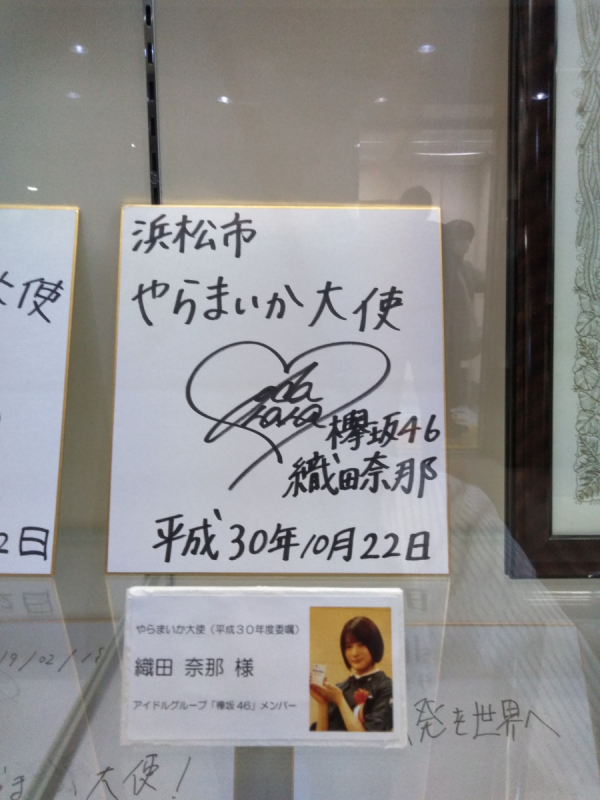 浜松市
やらまいか大使
欅坂46
織田奈那
平成30年10月22日
やらまいか大使（平成３０年度委嘱）
織田 奈那 様
アイドルグループ「欅坂46」メンバー
大使
2日
19/02/18
発を世界へ
まいか大使！